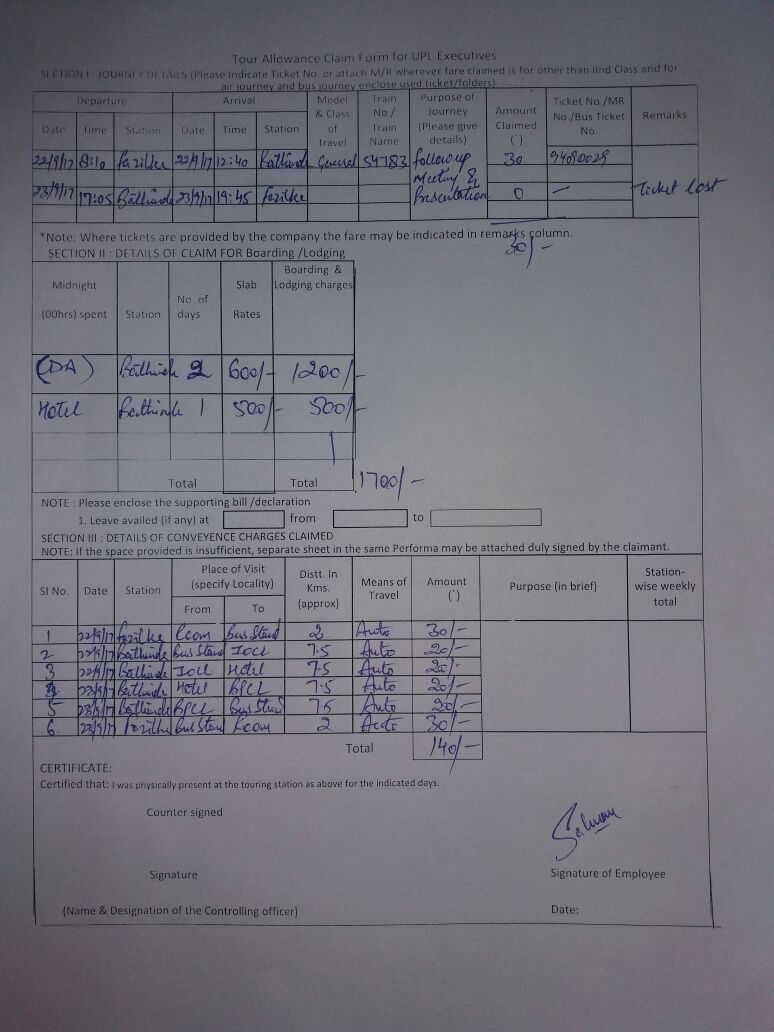 Tour Allowance Claim Form for UPL Executives
SECTION I : JOURNEY DETAILS (Please Indicate Ticket No. or attach M/R wherever fare claimed is for other than IInd Class and for
air journey and bus journey enclose used ticket/folders)
Departure Arrival Model & Class of travel Train No / Train Name Purpose of Journey (Please give details) Amount Claimed (`) Ticket No./MR No./Bus Ticket No. Remarks
Date Time Station Date Time Station
22/9/17 8:10 Fazilka 22/9/17 12:40 Bathinda General 54783 followup 30 94090029
Meeting &
23/9/17 17:05 Bathinda 23/9/17 19:45 Fazilka Presentation 0 — Ticket lost
*Note: Where tickets are provided by the company the fare may be indicated in remarks column.
30/-
SECTION II : DETAILS OF CLAIM FOR Boarding /Lodging
Midnight (00hrs) spent Station No. of days Slab Rates Boarding & Lodging charges
(DA) Bathinda 2 600/- 1200/-
Hotel Bathinda 1 500/- 500/-
Total Total 1700/-
NOTE : Please enclose the supporting bill /declaration
1. Leave availed (if any) at from to
SECTION III : DETAILS OF CONVEYENCE CHARGES CLAIMED
NOTE: If the space provided is insufficient, separate sheet in the same Performa may be attached duly signed by the claimant.
Sl No. Date Station Place of Visit (specify Locality) Distt. In Kms. (approx) Means of Travel Amount (`) Purpose (in brief) Station-wise weekly total
From To
1 22/9/17 Fazilka Room Bus Stand 2 Auto 30/-
2 22/9/17 Bathinda Bus Stand IOCL 7.5 Auto 20/-
3 22/9/17 Bathinda IOCL Hotel 7.5 Auto 20/-
4 23/9/17 Bathinda Hotel BPCL 7.5 Auto 20/-
5 23/9/17 Bathinda BPCL Bus Stand 7.5 Auto 20/-
6. 23/9/17 Fazilka Bus Stand Room 2 Auto 30/-
Total 140/-
CERTIFICATE:
Certified that: I was physically present at the touring station as above for the indicated days.
Counter signed
Salman
Signature Signature of Employee
(Name & Designation of the Controlling officer) Date: